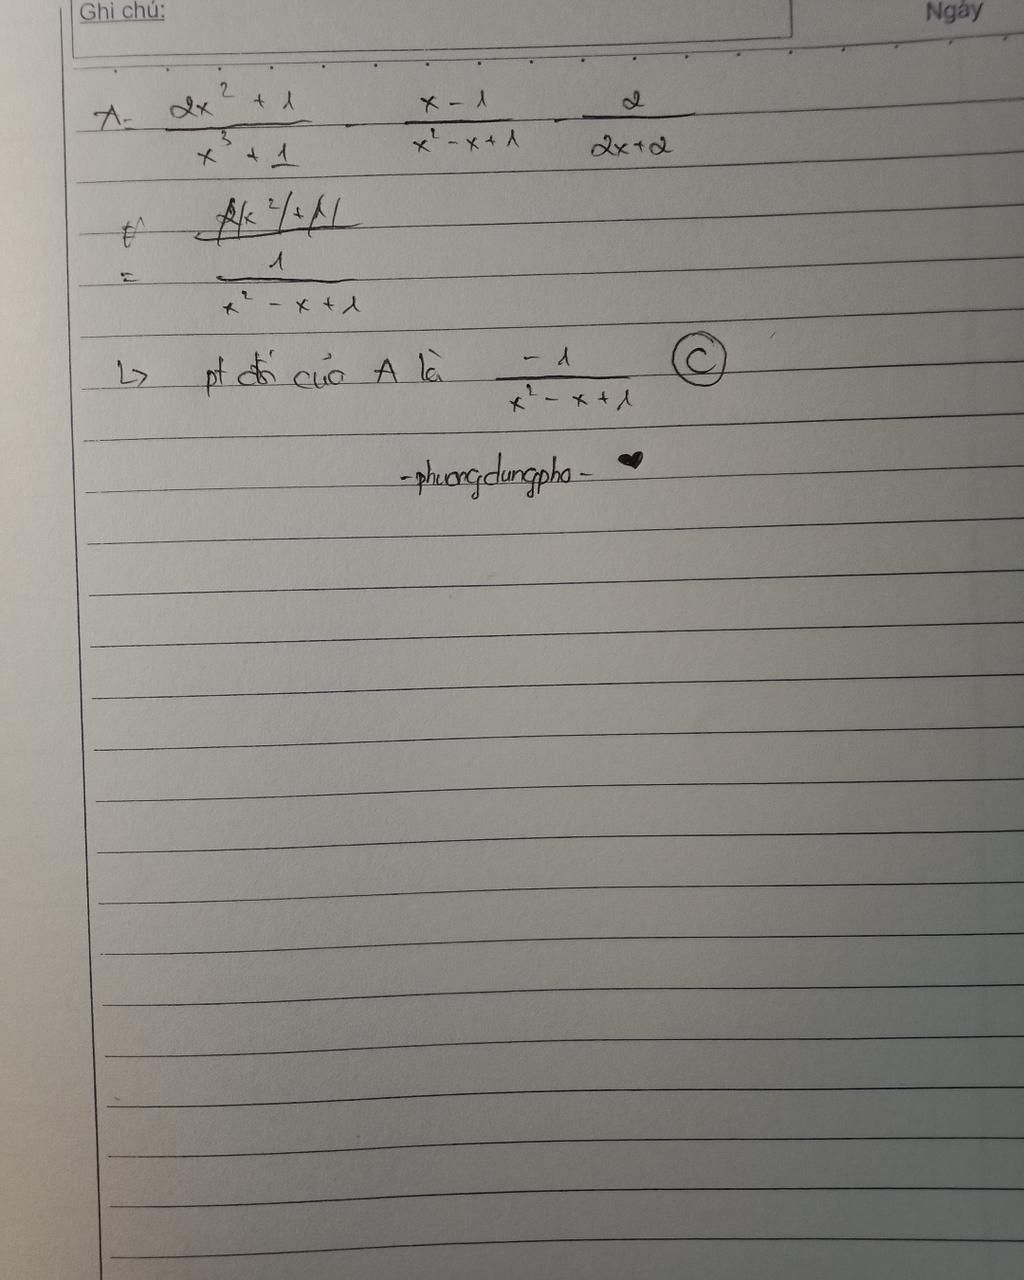 Ghi chú: Ngày
A = (2x² + 1)/(x³ + 1) - (x - 1)/(x² - x + 1) - 2/(2x + 2)
= 1/(x² - x + 1)
↳ pt đối của A là -1/(x² - x + 1) Ⓒ
- phuongdungpho - ♥